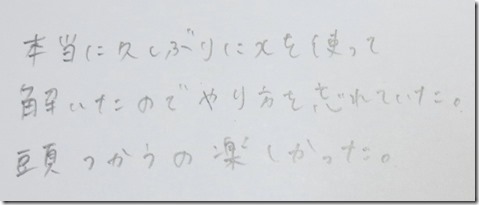 本当に久しぶりにxを使って
解いたのでやり方を忘れていた。
頭つかうの楽しかった。